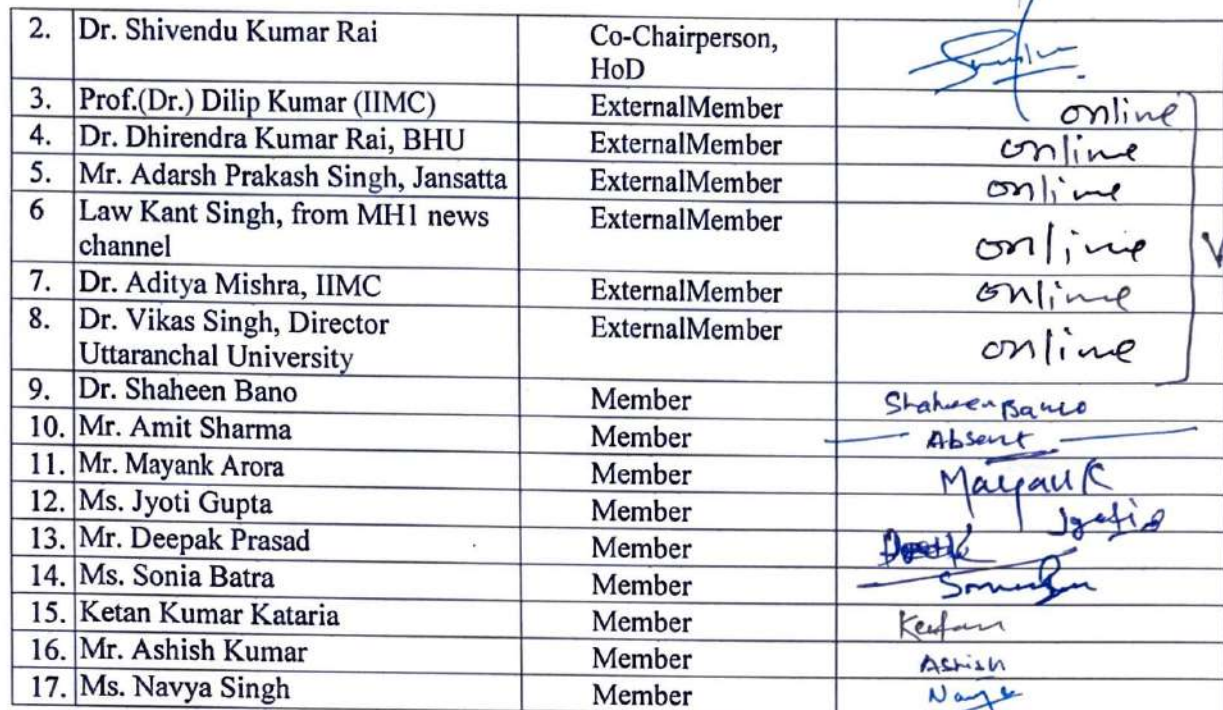 2. Dr. Shivendu Kumar Rai Co-Chairperson,
HoD
3. Prof.(Dr.) Dilip Kumar (IIMC) ExternalMember online
4. Dr. Dhirendra Kumar Rai, BHU ExternalMember online
5. Mr. Adarsh Prakash Singh, Jansatta ExternalMember online
6 Law Kant Singh, from MH1 news ExternalMember
channel online
7. Dr. Aditya Mishra, IIMC ExternalMember online
8. Dr. Vikas Singh, Director ExternalMember
Uttaranchal University online
9. Dr. Shaheen Bano Member Shaheen Bano
10. Mr. Amit Sharma Member Absent
11. Mr. Mayank Arora Member Mayank
12. Ms. Jyoti Gupta Member Jyoti
13. Mr. Deepak Prasad Member
14. Ms. Sonia Batra Member
15. Ketan Kumar Kataria Member Ketan
16. Mr. Ashish Kumar Member Ashish
17. Ms. Navya Singh Member Navya